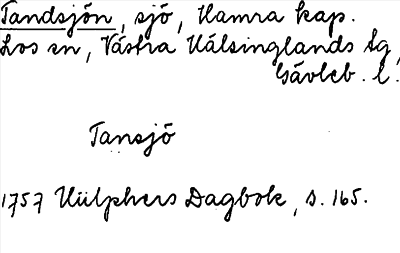 Tandsjön, sjö, Hamra kap.
Los sn, Västra Hälsinglands tg,
Gävleb. l.
Tansjö
1757 Hülphers Dagbok, s. 165.